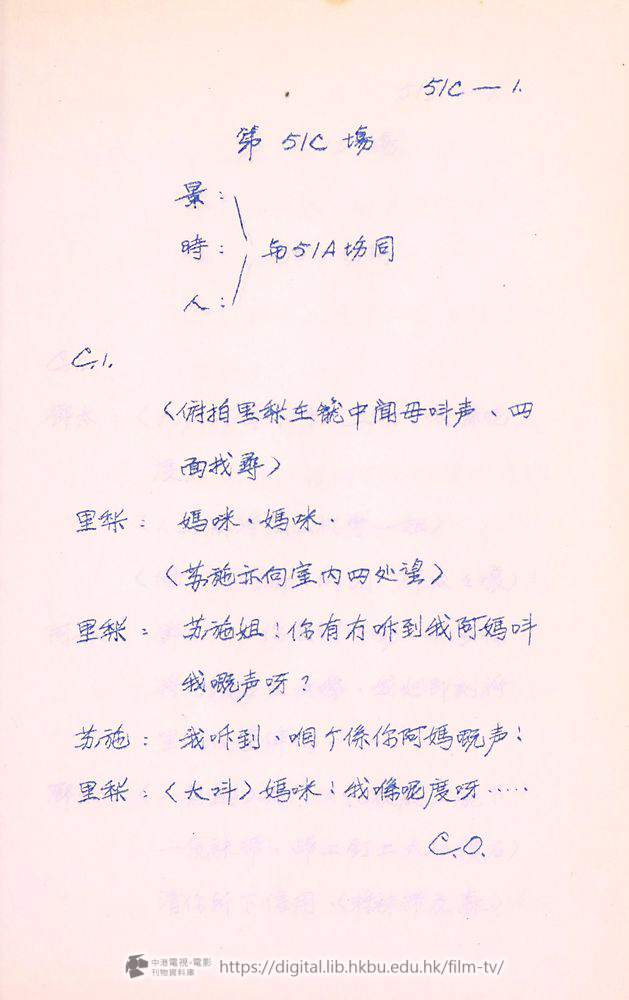 51C — 1.
第 51C 場
景：
時： 与51A场同
人：
C.I.
〈俯拍里梨在籠中聞母呌声、四
面找尋〉
里梨： 媽咪、媽咪．
〈苏施亦向室内四处望〉
里梨： 苏施姐！你有冇咗到我阿媽呌
我嘅声呀？
苏施： 我咗到、咽个係你阿媽嘅声！
里梨：〈大呌〉媽咪！我喺呢度呀‥‥‥
C.O.
中港電視·電影
刊物資料庫
https://digital.lib.hkbu.edu.hk/film-tv/